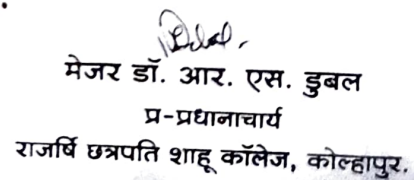 मेजर डॉ. आर. एस. डुबल
प्र-प्रधानाचार्य
राजर्षि छत्रपति शाहू कॉलेज, कोल्हापुर.